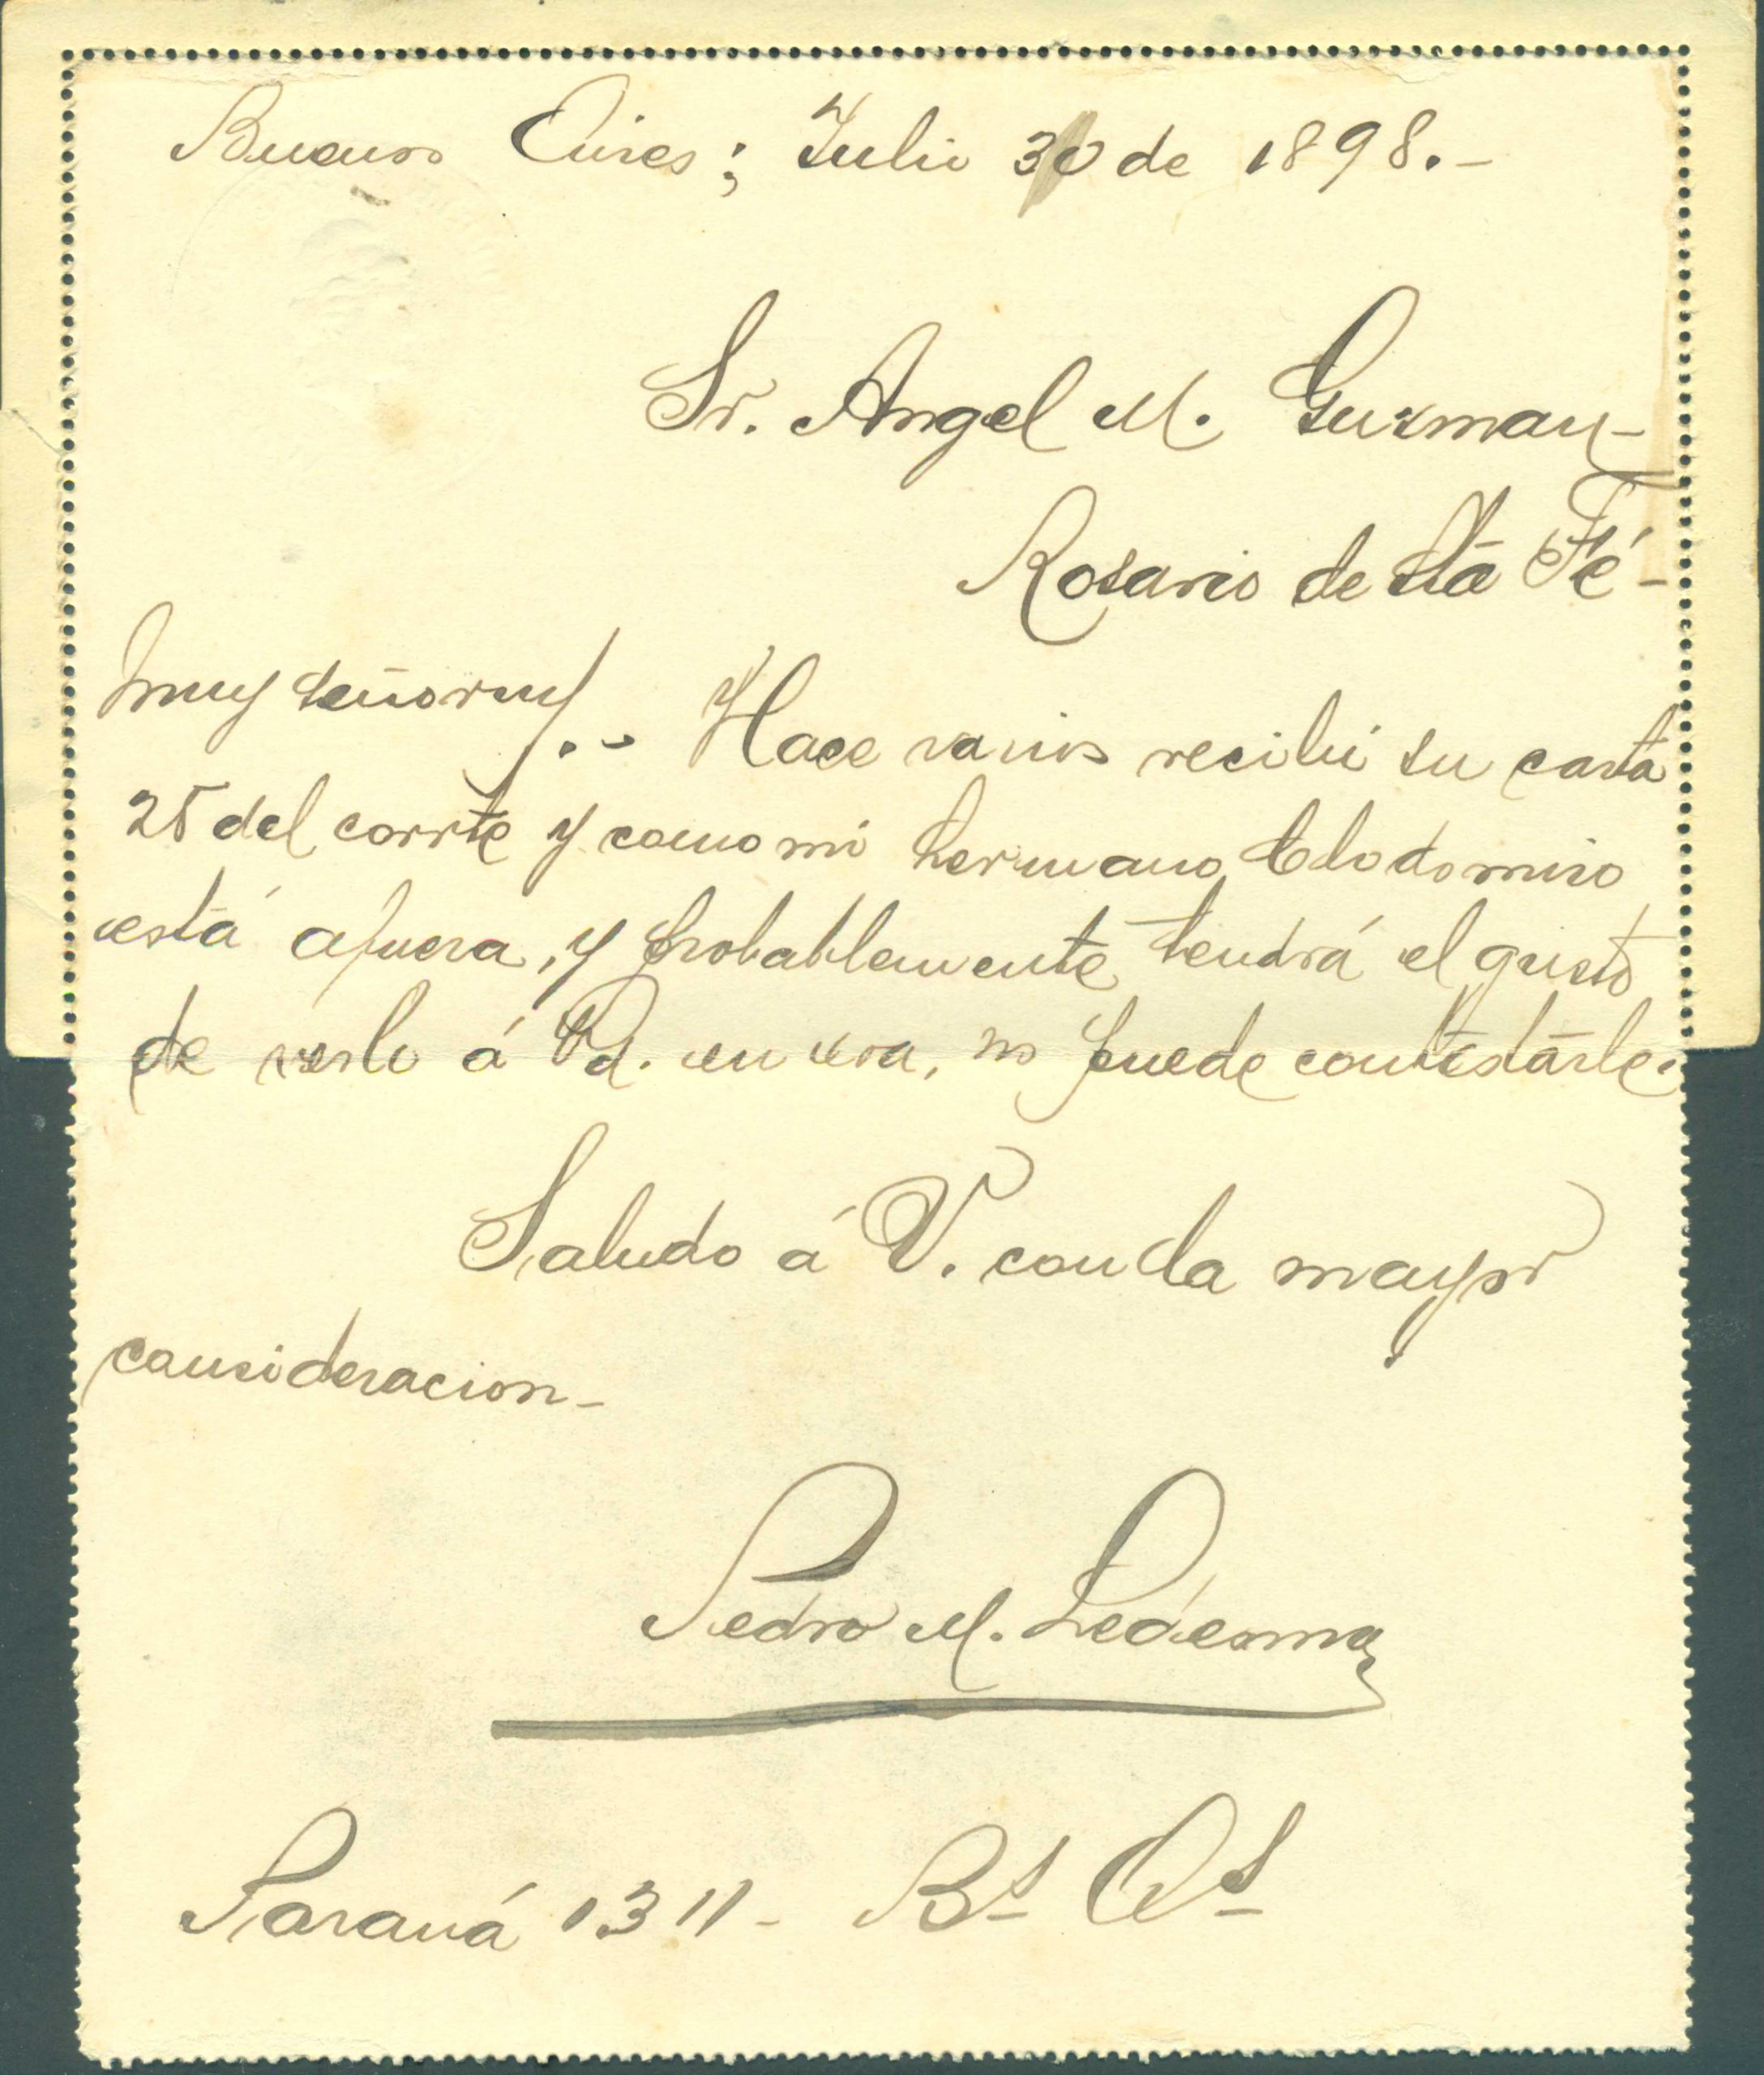 Buenos Aires; Julio 30 de 1898.-
Sr. Angel M. Guzman-
Rosario de Sta Fé-
Muy señor mío.- Hace varios recibí su carta
25 del corrte y como mi hermano Clodomiro
está afuera, y probablemente tendrá el gusto
de verlo á Vd. en esa, no puede contestarle.
Saludo á V. con la mayor
consideracion-
Pedro M. Ledesma
Paraná 1311- Bs As